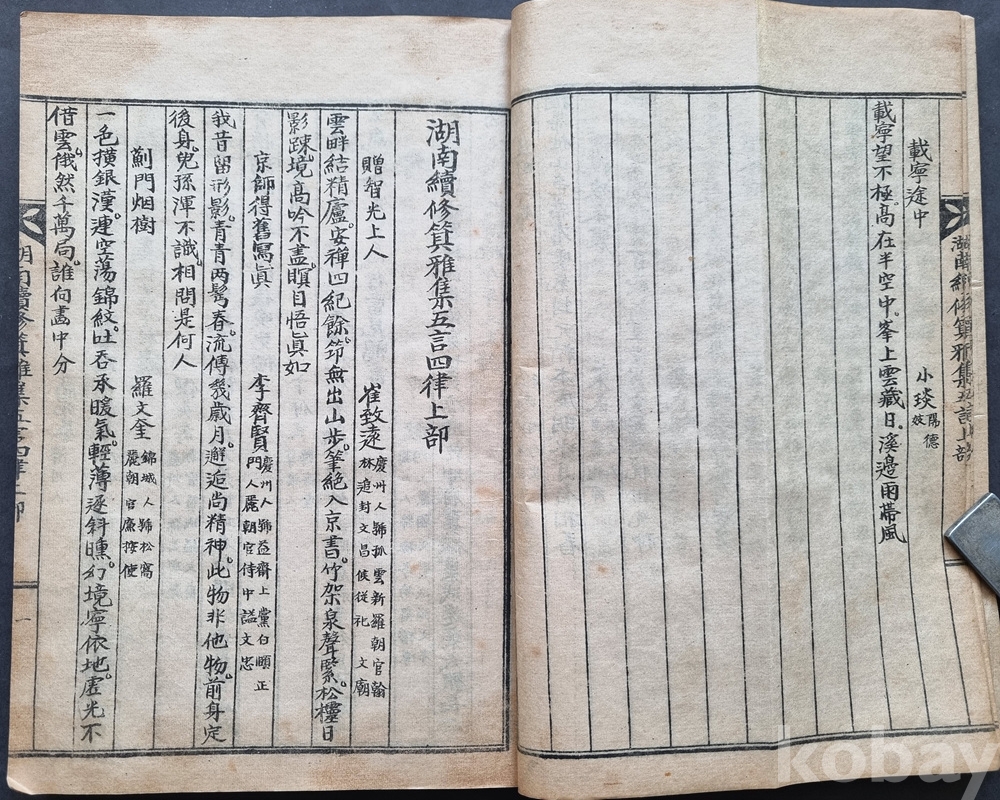 載寧途中
小琰 陽德妓
載寧望不極。高在半空中。峯上雲藏日。溪邊雨帶風
湖南續修箕雅集五言四律上部
贈智光上人
崔致遠 慶州人號孤雲新羅朝官翰
林追封文昌侯從祀文廟
雲畔結精廬。安禪四紀餘。筇無出山步。筆絕入京書。竹架泉聲緊。松欞日
影踈。境高吟不盡。瞑目悟眞如
京師得舊寫眞
李齊賢 慶州人號益齋上黨白頤正
門人麗朝官侍中謚文忠
我昔留形影。青青两鬂春。流傳幾歲月。邂逅尚精神。此物非他物。前身定
後身。兒孫渾不識。相問是何人
薊門烟樹
羅文奎 錦城人號松窩
麗朝官廉按使
一色橫銀漢。連空蕩錦紋。吐吞承暖氣。輕薄逐斜曛。幻境寧依地。虛光不
借雲。俄然千萬局。誰何畵中分
一
kobay